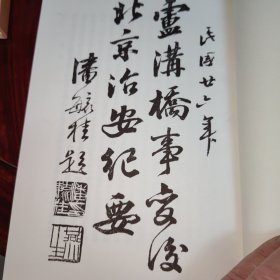 民國廿六年
盧溝橋事变後
北京治安纪要
潘毓桂題